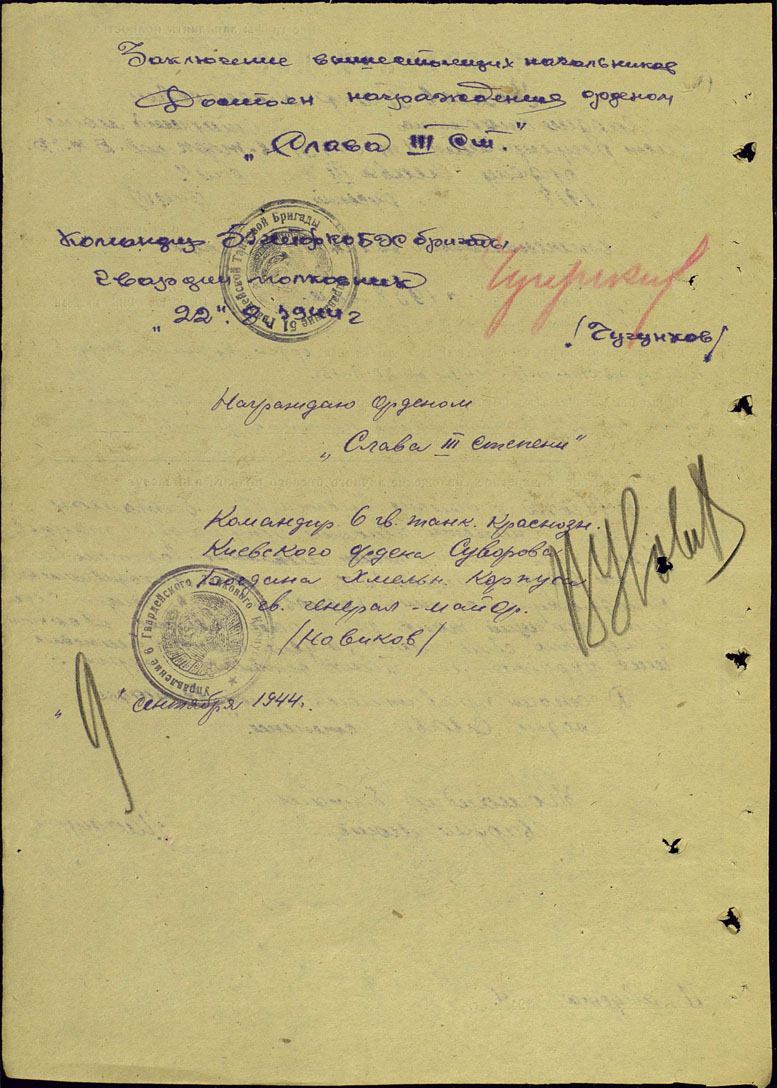 Заключение вышестоящих начальников
Достоен награждения орденом
"Слава III ст."
Командир 51 гв бригады
Гвардии полковник
"22". 8 1944 г
/Чугунков/
Управление 51 Гвардейской Танковой Бригады
Награждаю Орденом
"Слава III степени"
Командир 6 гв. танк. Краснозн.
Киевского ордена Суворова
Богдана Хмельн. Корпуса
гв. генерал-майор.
/Новиков/
Управление 6 Гвардейского Танкового Корпуса
"9" сентября 1944г.